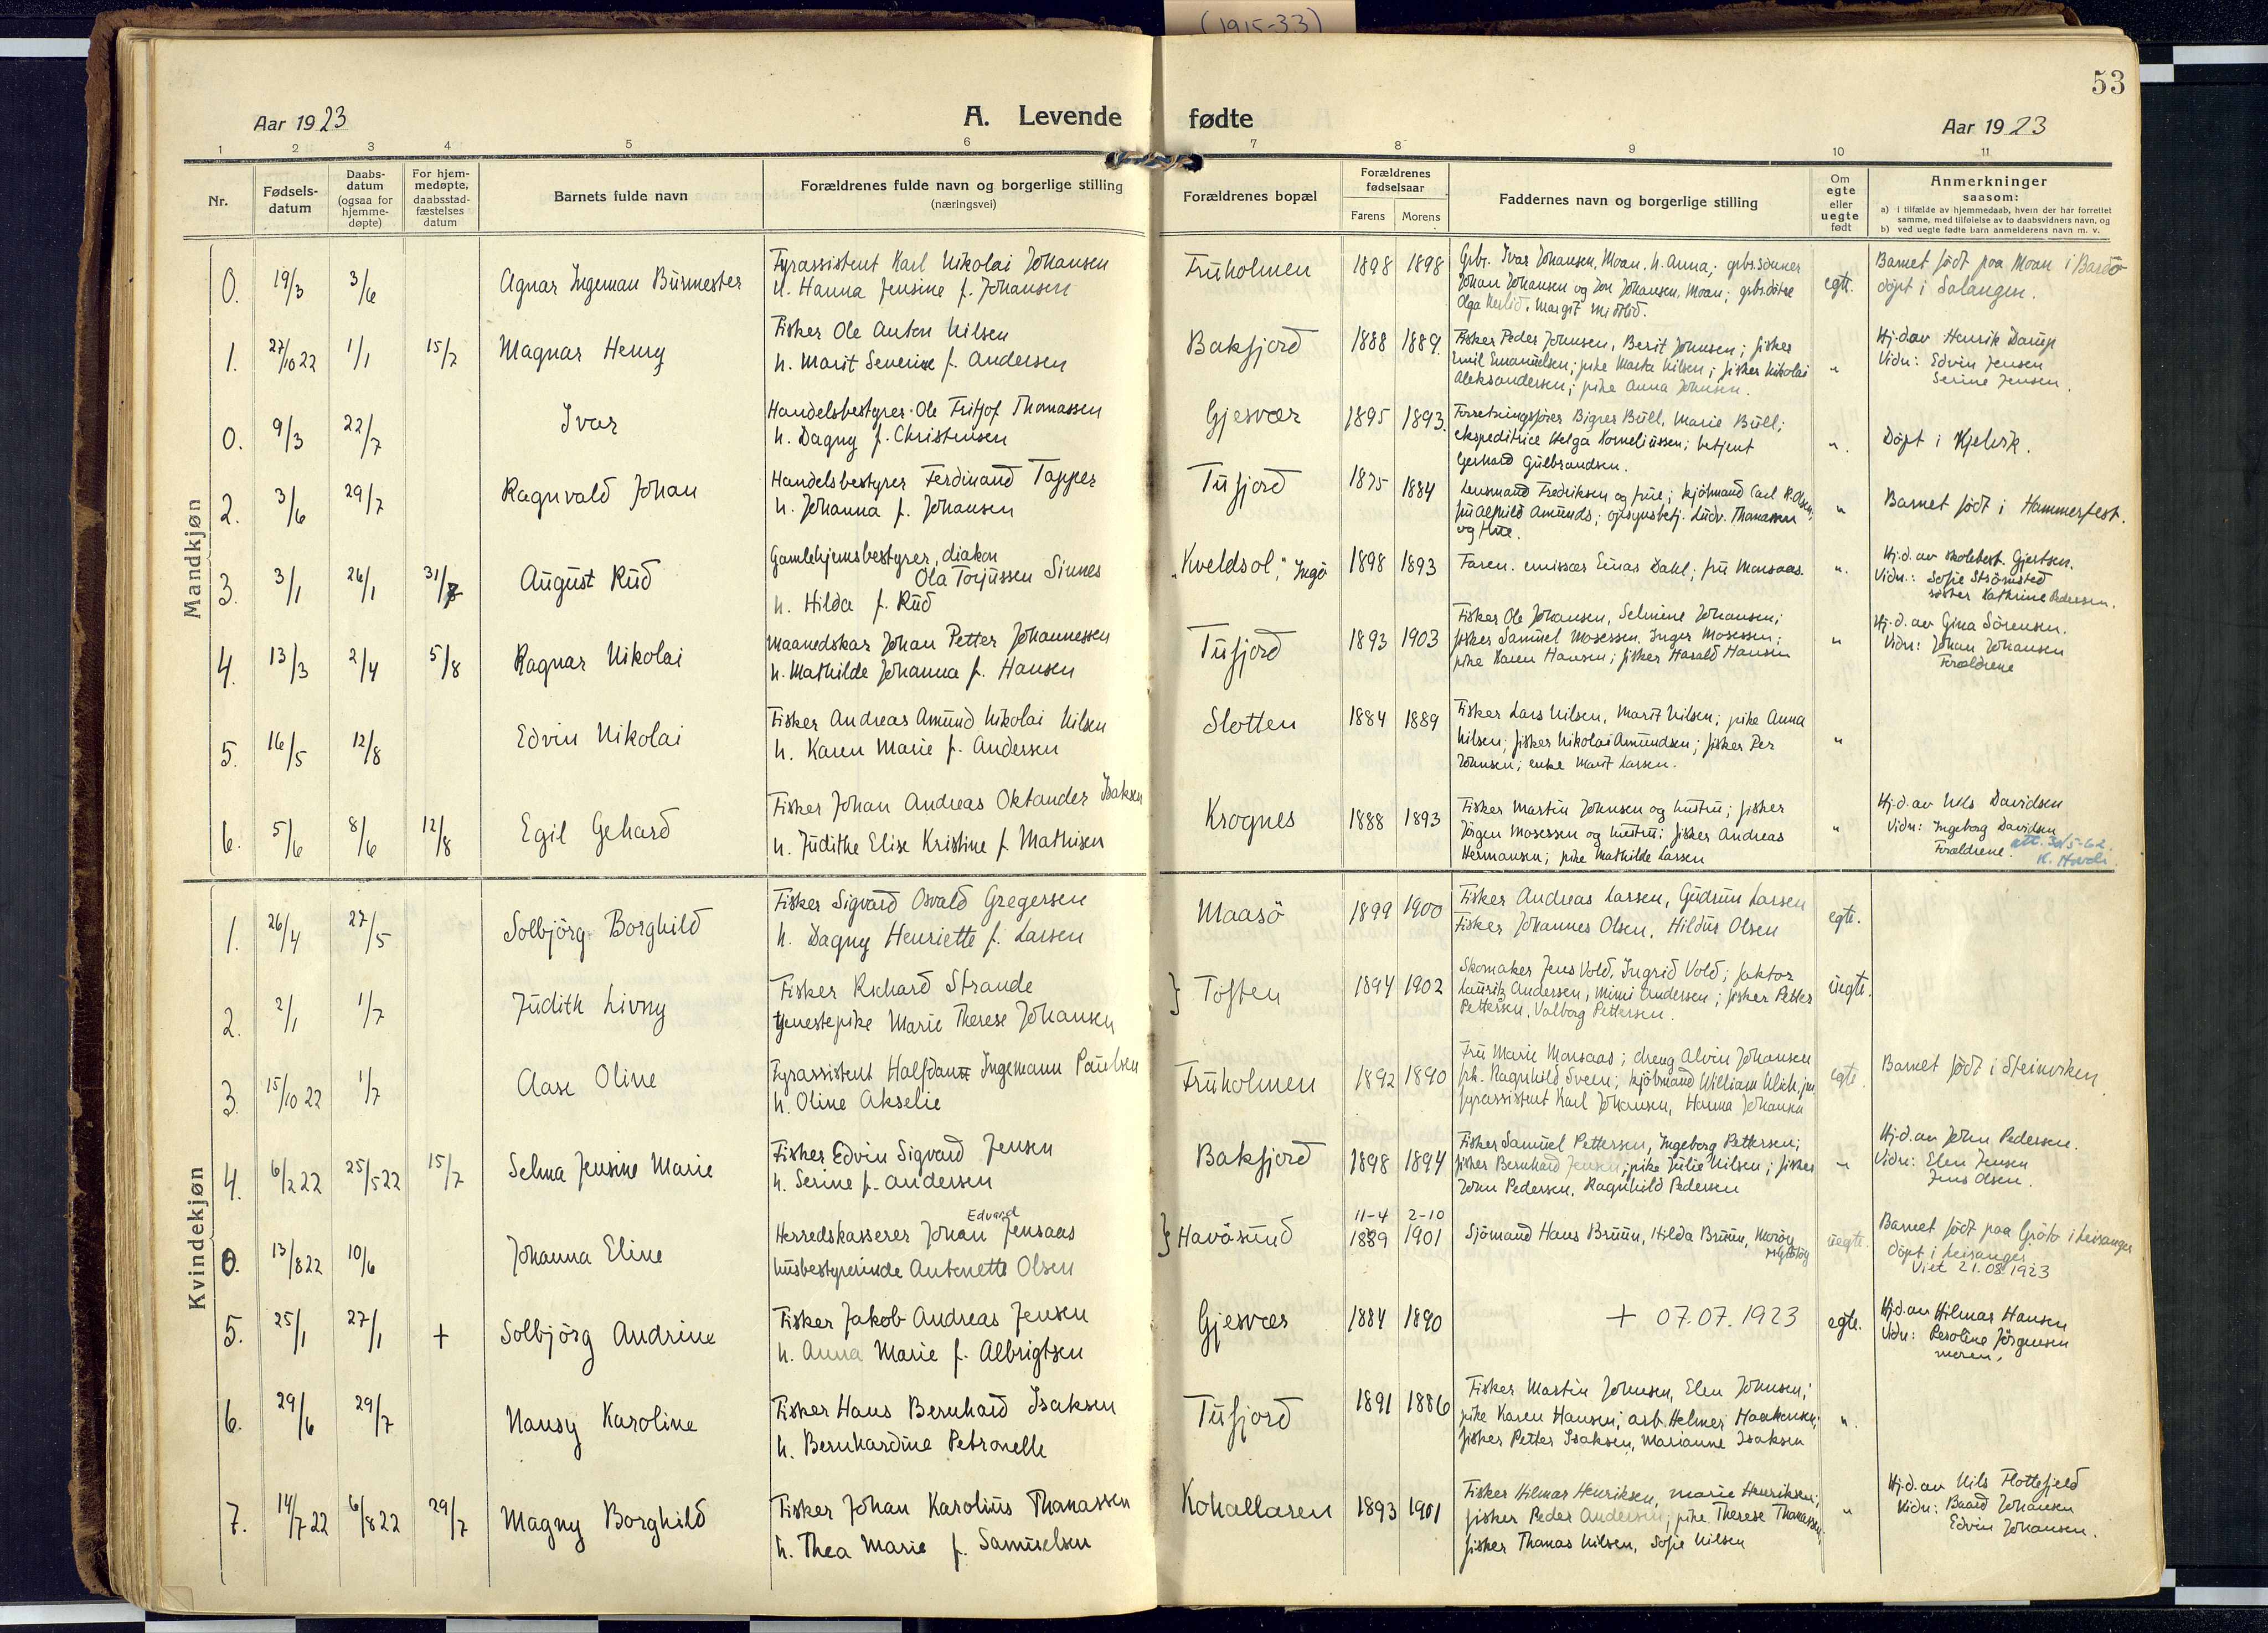 (1915-33)
53
Aar 1923
A. Levende fødte
Aar 1923
1 2 3 4 5 6 7 8 9 10 11
Nr.
Fødsels-
datum
Daabs-
datum
(ogsaa for
hjemme-
døpte)
For hjem-
medøpte,
daabsstad-
fæstelses
datum
Barnets fulde navn
Forældrenes fulde navn og borgerlige stilling
(næringsvei)
Forældrenes bopæl
Forældrenes
fødselsaar
Farens Morens
Faddernes navn og borgerlige stilling
Om
egte
eller
uegte
født
Anmerkninger
saasom:
a) i tilfælde av hjemmedaab, hvem der har forrettet
samme, med tilføielse av to daabsvidners navn, og
b) ved uegte fødte barn anmelderens navn m. v.
Mandkjøn
0. 19/3 3/6 Agnar Ingeman Burmester
Fyrassistent Karl Nikolai Johansen
h. Hanna Jensine f. Johansen
Fruholmen 1898 1898
Grbr. Ivar Johansen, Moan, h. Anna; grbr.sönner
Johan Johansen og Jon Johansen, Moan; grbr.döttre
Olga Margit
egte.
Barnet födt paa Moan i Bardö
döpt i Salangen.
1. 27/10 22 1/1 15/7 Magnar Henry
Fisker Ole Anton Nilsen
h. Marit Severine f. Andersen
Bakfjord 1888 1889.
Fisker Peder Johnsen, Berit Johnsen; fisker
Emil Emanuelsen; pike Marta Nilsen; fisker Nikolai
Aleksandersen; pike Anna Johnsen.
"
Hj.d.av Henrik Darup
Vidn: Edvin Jensen
Serine Jensen.
0. 9/3 22/7 Ivar
Handelsbestyrer Ole Fritjof Thomassen
h. Dagny f. Christensen
Gjesvær 1895 1893.
Forretningsfører Birger Büll, Marie Büll;
ekspeditrice Helga Korneliussen; betjent
Gerhard Gulbrandsen.
"
Döpt i Kjelvik.
2. 3/6 29/7 Ragnvald Johan
Handelsbestyrer Ferdinand Tapper
h. Johanna f. Johansen
Tufjord 1875 1884
Lensmand Fredriksen og frue; kjöbmand Carl R. Olsen;
fru Alfhild Amunds; opsynsbetj. Ludv. Thomassen
og frue.
"
Barnet födt i Hammerfest.
3. 3/1 26/1 31/7 August Rud
Gamlehjemsbestyrer, diakon
Ola Torjussen Sinnes
h. Hilda f. Rud
"Kveldsol", Ingö 1898 1893
Faren. emissær Einar Dahl; fru Monsaas.
"
Hj.d.av skolebest. Gjertsen.
Vidn.: Sofie Strömsted
söster Kathrine Pedersen.
4. 13/3 2/4 5/8 Ragnar Nikolai
Maanedskar Johan Petter Johannessen
h. Mathilde Johanna f. Hansen
Tufjord 1893 1903
Fisker Ole Johansen, Selmine Johansen;
fisker Samuel Mosessen, Inger Mosessen;
pike Karen Hansen; fisker Harald Hansen
"
Hj.d.av Gina Sörensen.
Vidn: Johan Johansen
Forældrene
5. 16/5 12/8 Edvin Nikolai
Fisker Andreas Amund Nikolai Nilsen
h. Karen Marie f. Andersen
Slotten 1884 1889
Fisker Lars Nilsen, Marit Nilsen; pike Anna
Nilsen; fisker Nikolai Amundsen; fisker Per
Johnsen; enke Marit Larsen.
"
6. 5/6 8/6 12/8 Egil Gehard
Fisker Johan Andreas Oktander Isaksen
h. Judithe Elise Kristine f. Mathisen
Krognes 1888 1893
Fisker Martin Johnsen og hustru; fisker
Jörgen Mosessen og hustru; fisker Andreas
Hermansen; pike Mathilde Larsen
"
Hj.d.av Nils Davidsen
Vidn: Ingeborg Davidsen
Forældrene. att. 30/5-62.
Kvindekjøn
1. 26/4 27/5 Solbjörg Borghild
Fisker Sigvard Osvald Gregersen
h. Dagny Henriette f. Larsen
Maasö 1899 1900
Fisker Andreas Larsen, Gudrun Larsen
Fisker Johannes Olsen, Hildur Olsen
egte.
2. 2/1 1/7 Judith Livny
Fisker Richard Strande
tjenestepike Marie Therese Johansen
} Toften 1894 1902
Skomaker Jens Vold, Ingrid Vold; faktor
Lauritz Andersen, Mimi Andersen; fisker Petter
Pettersen, Valborg Pettersen.
uegte.
3. 15/10 22 1/7 Aase Oline
Fyrassistent Halfdan Ingemann Paulsen
h. Oline Akselie
Fruholmen 1892 1890
Fru Marie Monsaas; dreng Alvin Johansen
frk. Ragnhild Sveen; kjöbmand William Ulich jun.
fyrassistent Karl Johansen, Hanna Johansen
egte.
Barnet födt i Steinviken
4. 6/2 22 25/5 22 15/7 Selma Jensine Marie
Fisker Edvin Sigvard Jensen
h. Serine f. Andersen
Bakfjord 1898 1894
Fisker Samuel Pettersen, Ingeborg Pettersen;
fisker Bernhard Jensen; pike Julie Nilsen; fisker
John Pedersen, Ragnhild Pedersen
"
Hj.d.av John Pedersen.
Vidn: Elen Jensen
Jens Olsen.
0. 13/8 22 10/6 Johanna Eline
Edvard
Herredskasserer Johan Jensaas
husbestyrerinde Antonette Olsen
11-4 2-10
} Havösund 1889 1901
Sjömand Hans Bruun, Hilda Bruun,
uegte.
Barnet födt paa Grötö i Leiranger
döpt i Leiranger
Viet 21.08.1923
5. 25/1 27/1 + Solbjörg Andrine
Fisker Jakob Andreas Jensen
h. Anna Marie f. Albrigtsen
Gjesvær 1884 1890
+ 07.07.1923
egte.
Hj.d.av Hilmar Hansen
Vidn: Peroline Jörgensen
moren.
6. 29/6 29/7 Nansy Karoline
Fisker Hans Bernhard Isaksen
h. Bernhardine Petronelle
Tufjord 1891 1886
Fisker Martin Johnsen, Elen Johnsen;
pike Karen Hansen; arb. Helmer Haakensen;
fisker Petter Isaksen, Marianne Isaksen
"
7. 14/7 22 6/8 22 29/7 Magny Borghild
Fisker Johan Karolius Thomassen
h. Thea Marie f. Samuelsen
Kohallaren 1893 1901
Fisker Hilmar Henriksen, Marie Henriksen;
fisker Peder Andersen; pike Therese Thomassen;
fisker Thomas Nilsen, Sofie Nilsen
"
Hj.d.av Nils Flottefjeld
Vidn: Baard Johansen
Edvin Johansen.